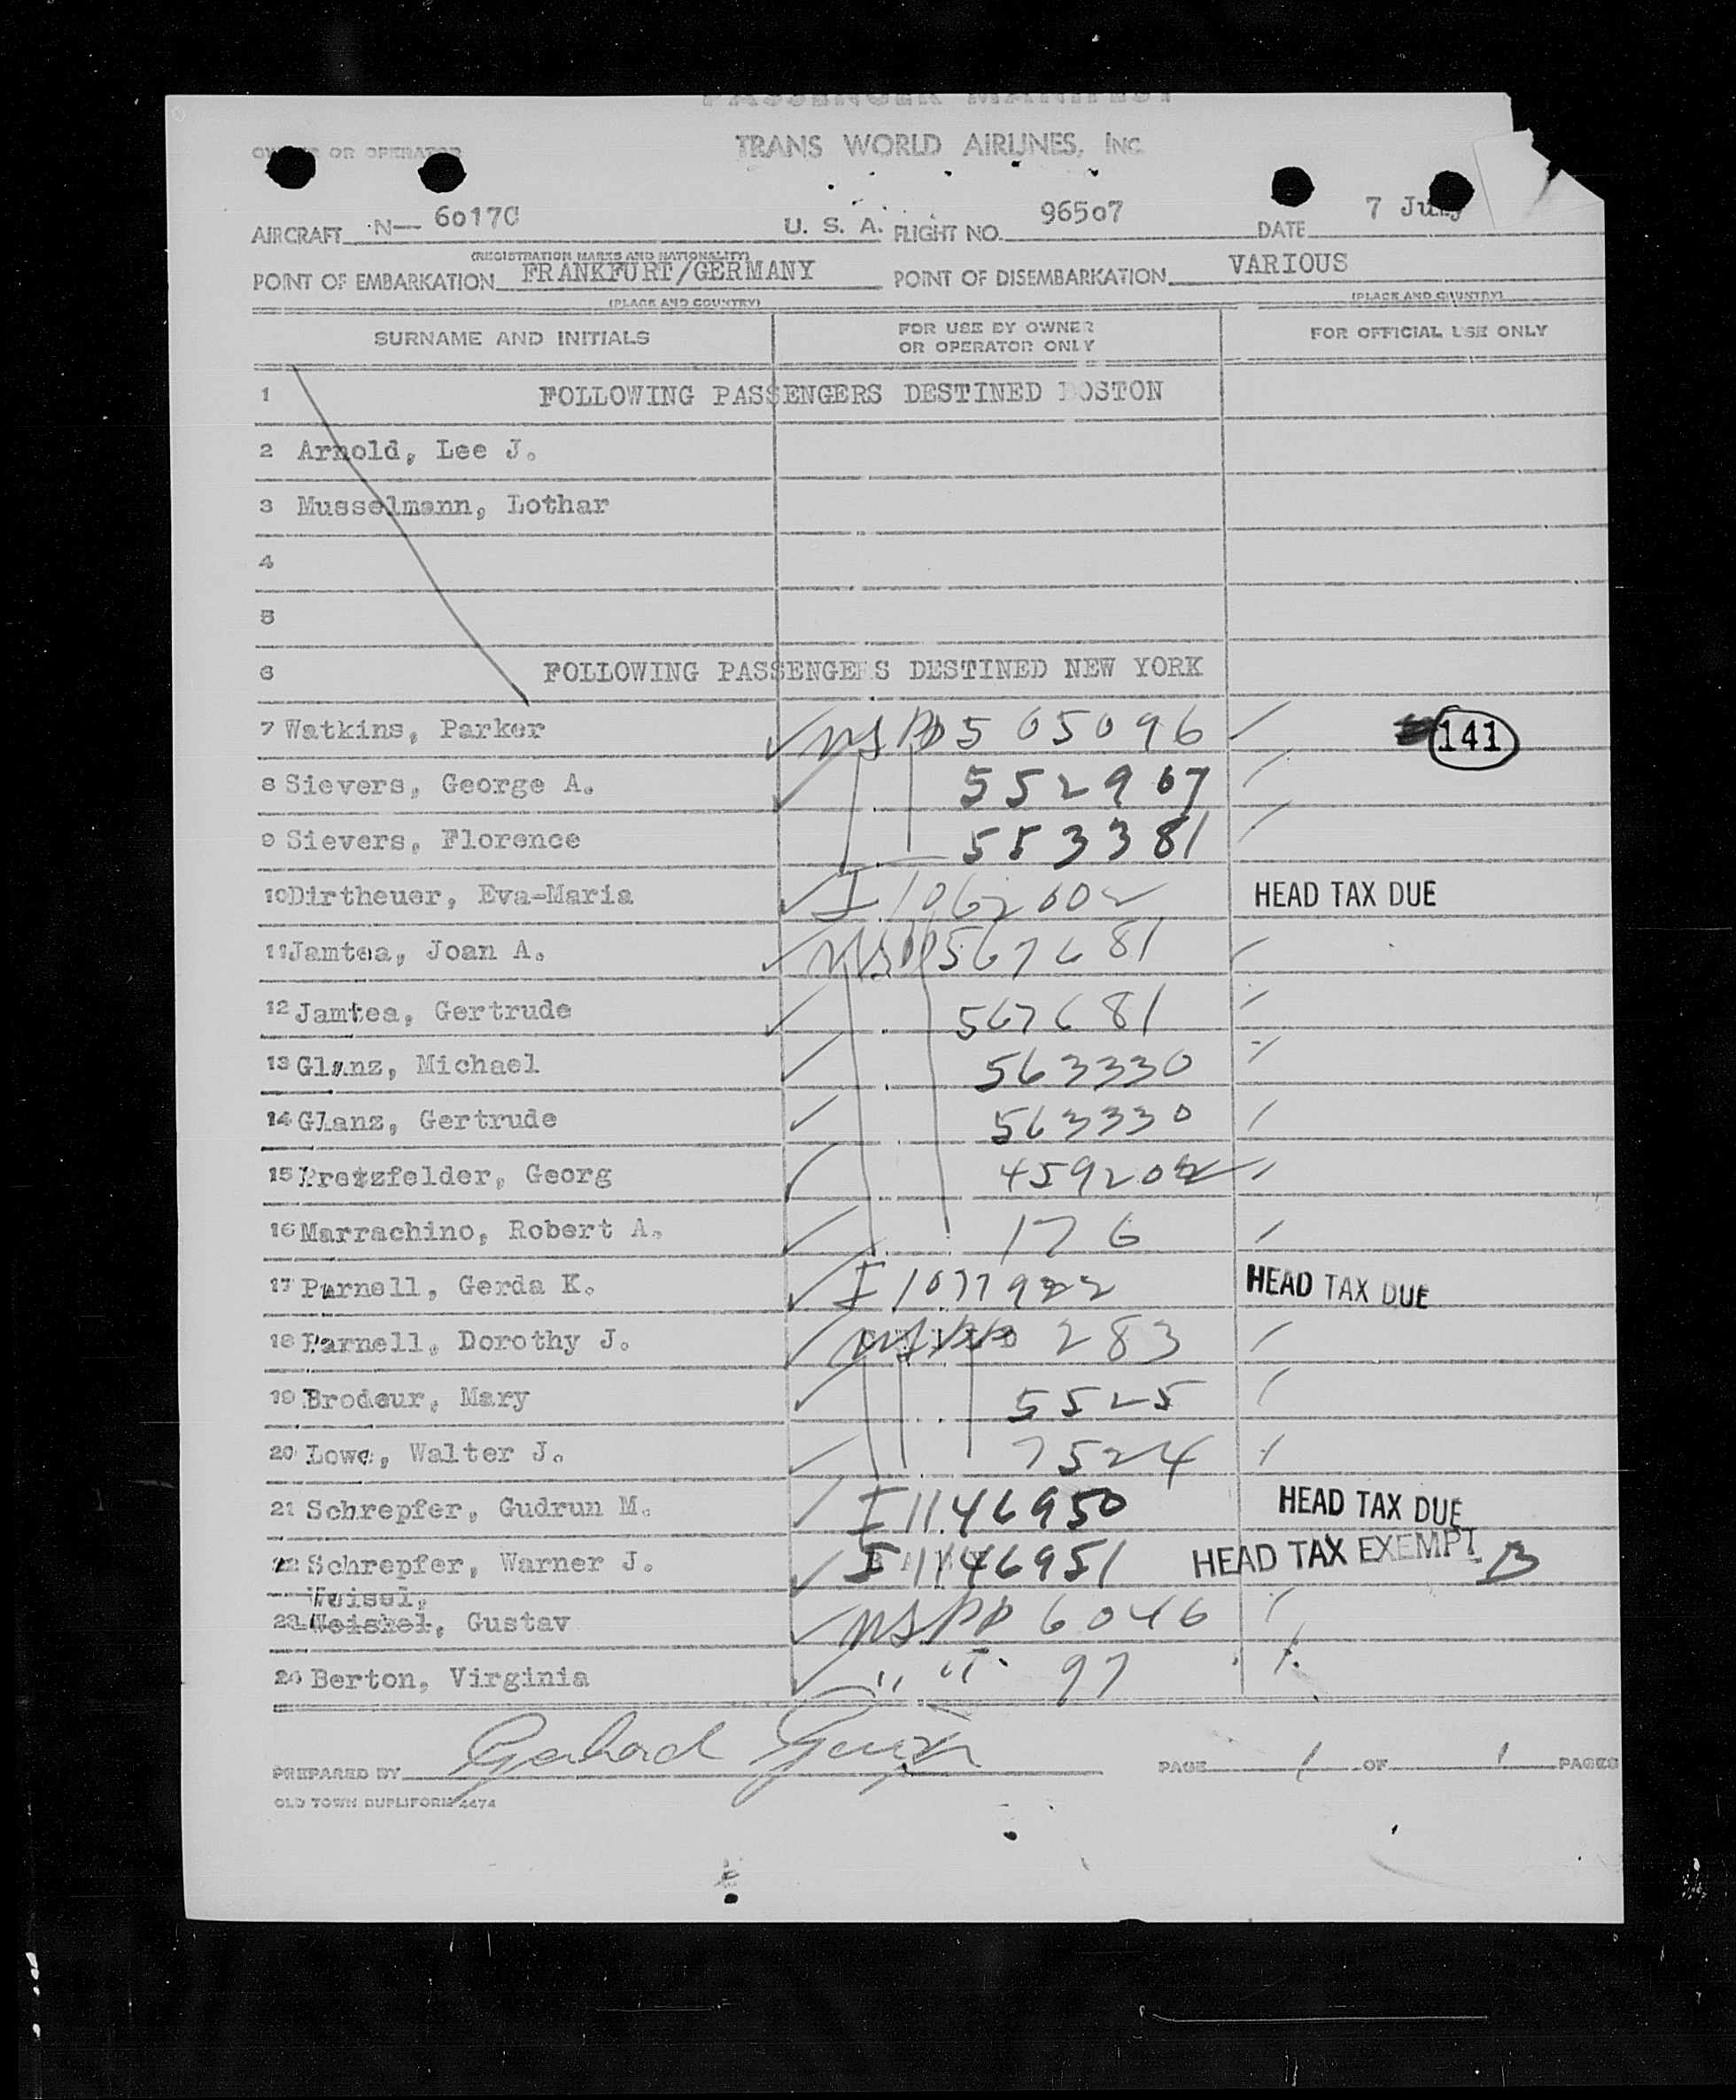 PASSENGER MANIFEST
OWNER OR OPERATOR TRANS WORLD AIRLINES, Inc.
AIRCRAFT N— 6017C U. S. A. FLIGHT NO. 96507 DATE 7 July
(REGISTRATION MARKS AND NATIONALITY)
POINT OF EMBARKATION FRANKFURT/GERMANY POINT OF DISEMBARKATION VARIOUS
(PLACE AND COUNTRY) (PLACE AND COUNTRY)
SURNAME AND INITIALS FOR USE BY OWNER OR OPERATOR ONLY FOR OFFICIAL USE ONLY
1 FOLLOWING PASSENGERS DESTINED BOSTON
2 Arnold, Lee J.
3 Musselmann, Lothar
4
5
6 FOLLOWING PASSENGERS DESTINED NEW YORK
7 Watkins, Parker ✓ USPP 505096 ✓ 141
8 Sievers, George A. ✓ 552967 ✓
9 Sievers, Florence 553381 ✓
10 Dirtheuer, Eva-Maria ✓ I 1062002 HEAD TAX DUE
11 Jamtea, Joan A. ✓ USPP 567681 ✓
12 Jamtea, Gertrude ✓ 567681 ✓
13 Glanz, Michael ✓ 563330 ✓
14 Glanz, Gertrude ✓ 563330 ✓
15 Pretzfelder, Georg ✓ 459202 ✓
16 Marrachino, Robert A. ✓ 176 ✓
17 Parnell, Gerda K. ✓ I 1077922 HEAD TAX DUE
18 Parnell, Dorothy J. ✓ USPP 283 ✓
19 Brodeur, Mary ✓ 5525 ✓
20 Lowe, Walter J. ✓ 7524 ✓
21 Schrepfer, Gudrun M. ✓ I 1146950 HEAD TAX DUE
22 Schrepfer, Warner J. ✓ I 1146951 HEAD TAX EXEMPT B
Weisel,
23 Weishel, Gustav ✓ USPP 6046 ✓
24 Berton, Virginia ✓ " " 97 ✓
PREPARED BY Gerhard PAGE 1 OF 1 PAGES
OLD TOWN DUPLIFORM 4474